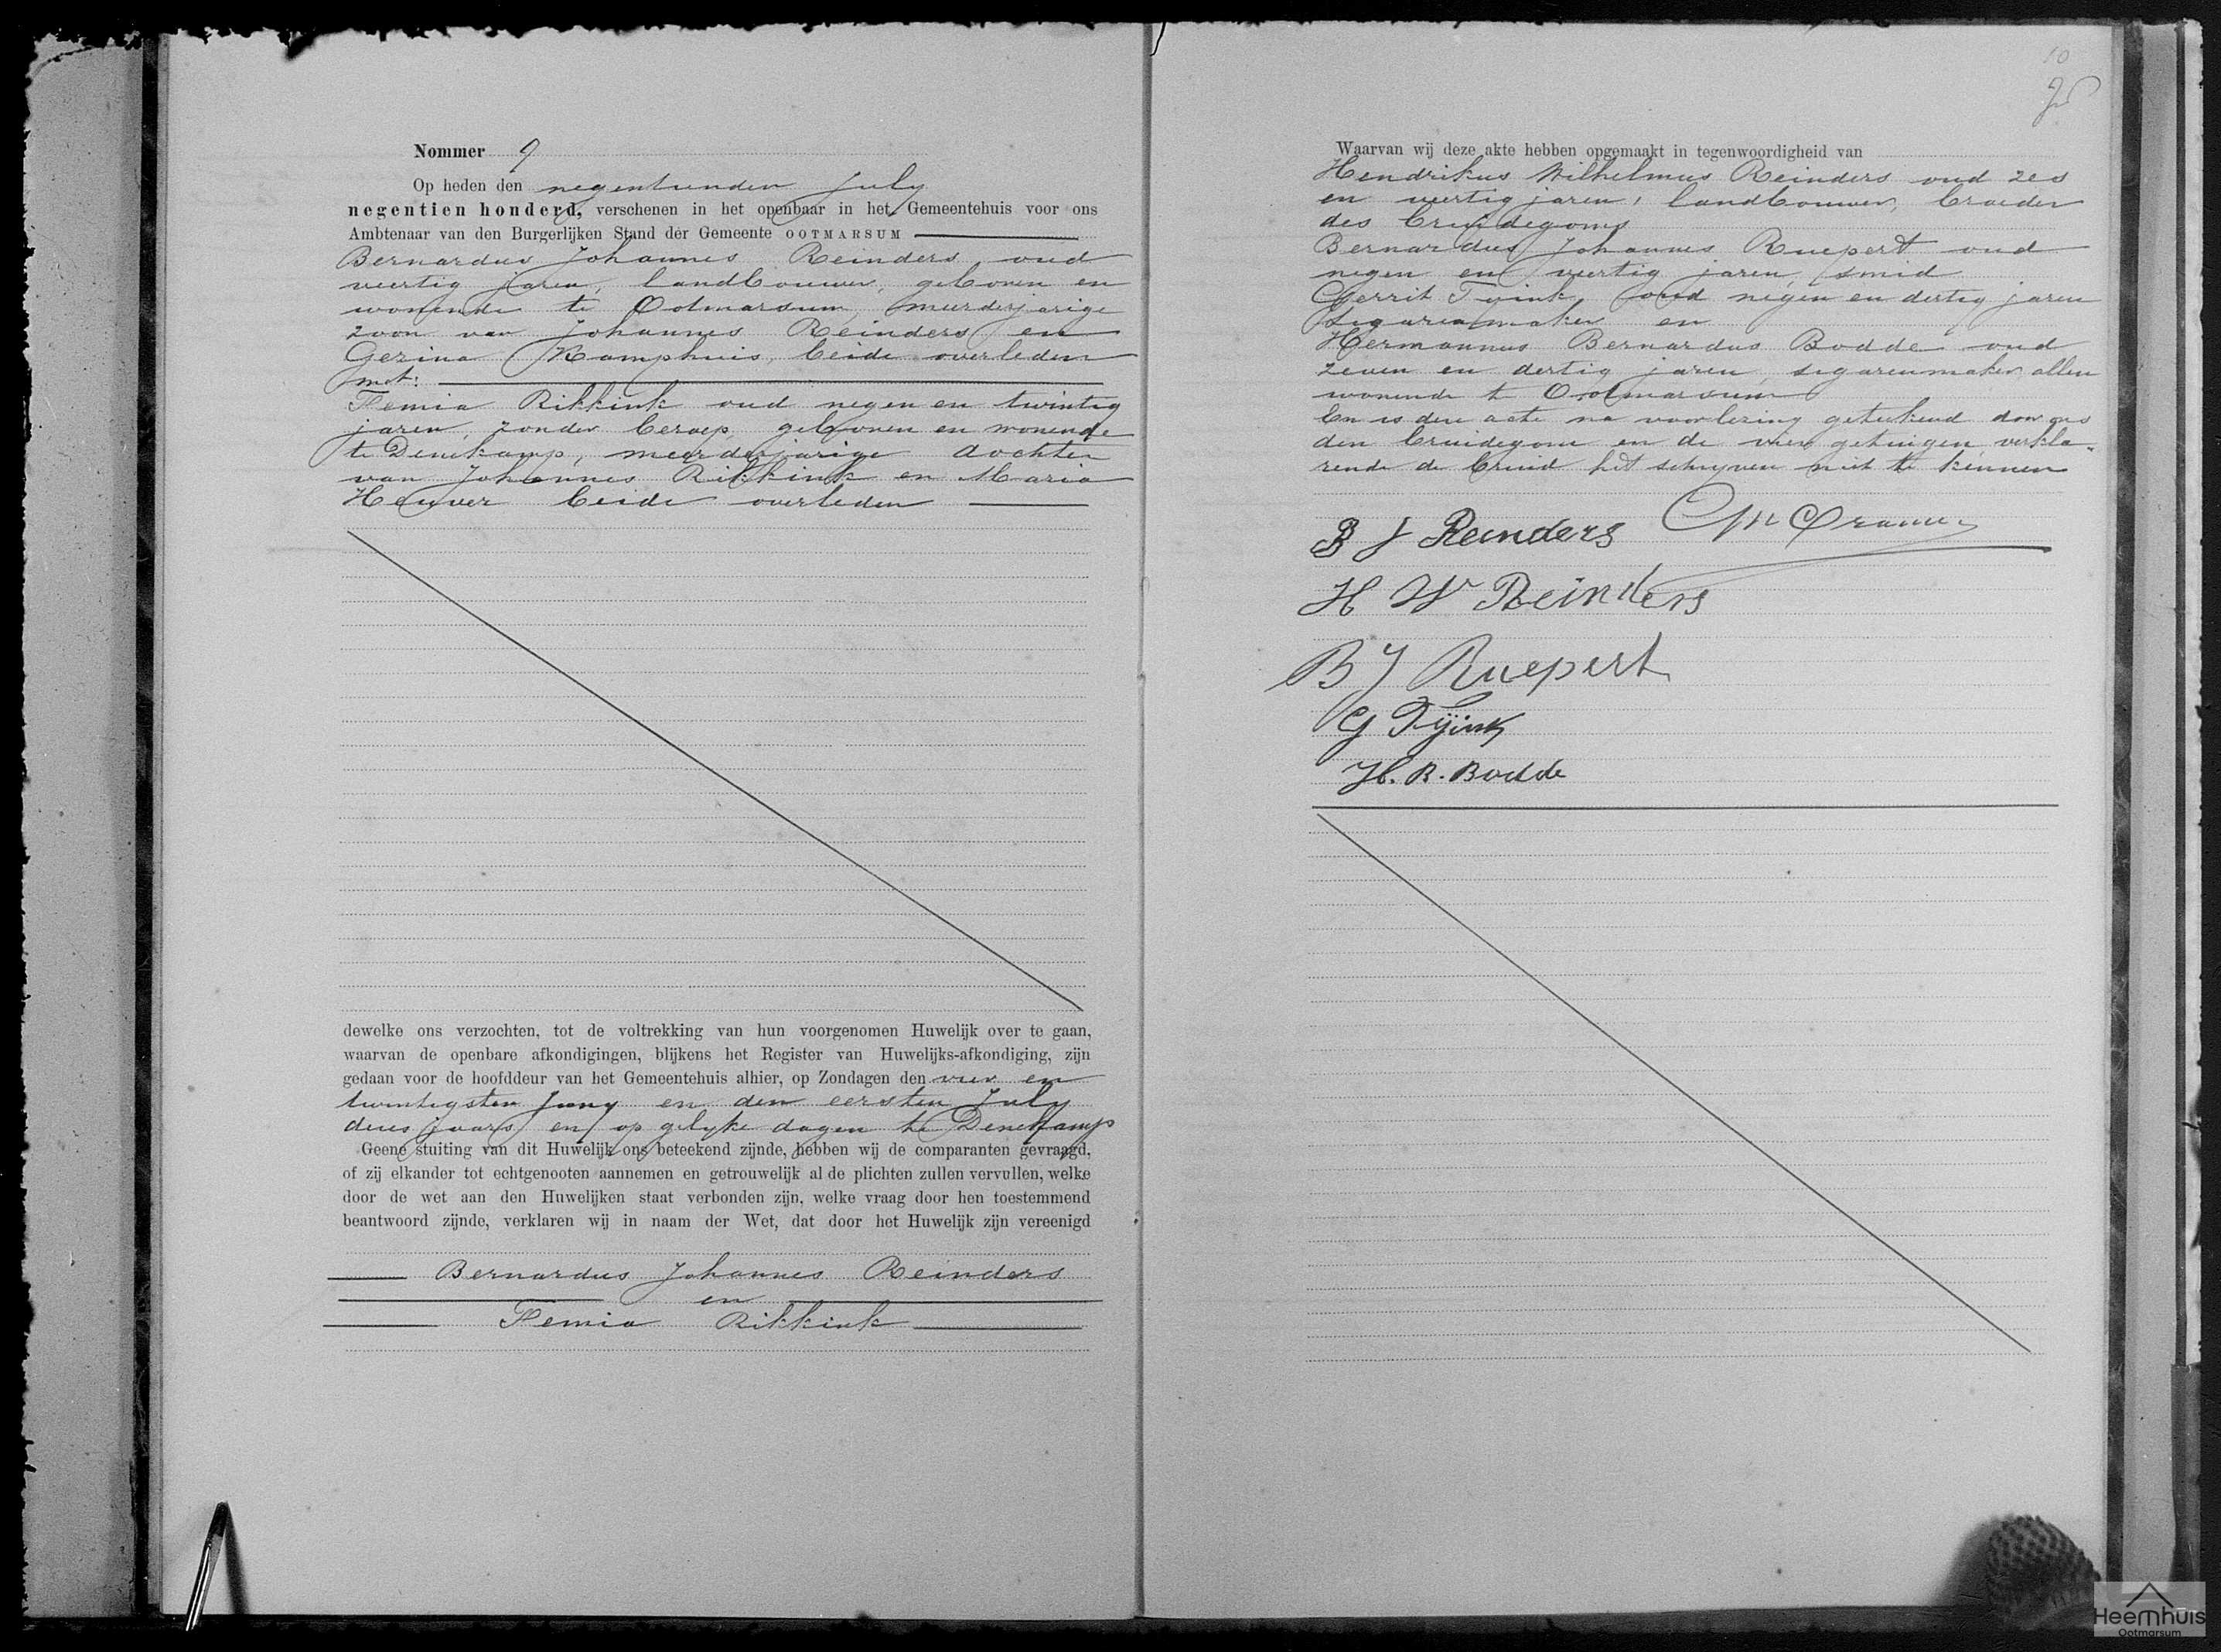 Nommer 9
Op heden den negentienden July
negentien honderd, verschenen in het openbaar in het Gemeentehuis voor ons
Ambtenaar van den Burgerlijken Stand der Gemeente OOTMARSUM
Bernardus Johannes Reinders oud
veertig jaren, landbouwer, geboren en
wonende te Ootmarsum, meerderjarige
zoon van Johannes Reinders en
Gezina Kamphuis, beide overleden
met:
Femia Rikkink oud negen en twintig
jaren, zonder beroep, geboren en wonende
te Denekamp, meerderjarige dochter
van Johannes Rikkink en Maria
Heuver beide overleden
dewelke ons verzochten, tot de voltrekking van hun voorgenomen Huwelijk over te gaan,
waarvan de openbare afkondigingen, blijkens het Register van Huwelijks-afkondiging, zijn
gedaan voor de hoofddeur van het Gemeentehuis alhier, op Zondagen den vier en
twintigsten Juny en den eersten July
dezes jaars en op gelyke dagen te Denekamp
Geene stuiting van dit Huwelijk ons beteekend zijnde, hebben wij de comparanten gevraagd,
of zij elkander tot echtgenooten aannemen en getrouwelijk al de plichten zullen vervullen, welke
door de wet aan den Huwelijken staat verbonden zijn, welke vraag door hen toestemmend
beantwoord zijnde, verklaren wij in naam der Wet, dat door het Huwelijk zijn vereenigd
Bernardus Johannes Reinders
en
Femia Rikkink
10
Waarvan wij deze akte hebben opgemaakt in tegenwoordigheid van
Hendrikus Wilhelmus Reinders oud zes
en veertig jaren, landbouwer, broeder
des bruidegoms
Bernardus Johannes Ruepert oud
negen en veertig jaren, smid
Gerrit Tyink, oud negen en dertig jaren
sigarenmaker en
Hermannus Bernardus Bodde oud
zeven en dertig jaren, sigarenmaker, allen
wonende te Ootmarsum
En is deze acte na voorlezing geteekend door ons
den bruidegom en de vier getuigen, verkla-
rende de bruid het schryven niet te kennen
B J Reinders
H W Reinders
B J Ruepert
G Tijink
H. B. Bodde
Heemhuis
Ootmarsum